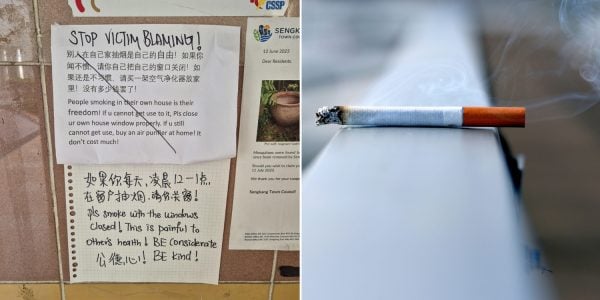 CSSP
STOP VICTIM BLAMING!
别人在自己家抽烟是自己的自由! 如果你
闻不惯, 请你自己把自己的窗口关闭! 如
果还是不习惯, 请买一架空气净化器放家
里! 没有多少钱罢了!
People smoking in their own house is their
freedom! if u cannot get use to it, Pls close
ur own house window properly. If u still
cannot get use, buy an air purifier at home! It
don't cost much!
如果你每天, 凌晨12-1点,
在窗户抽烟. 请你关窗!
Pls smoke with the windows
closed! This is painful to
other's health! BE Considerate
公德心! BE kind!
SENGKANG
TOWN
12 June 2023
Dear Residents
Sengkang Town Council